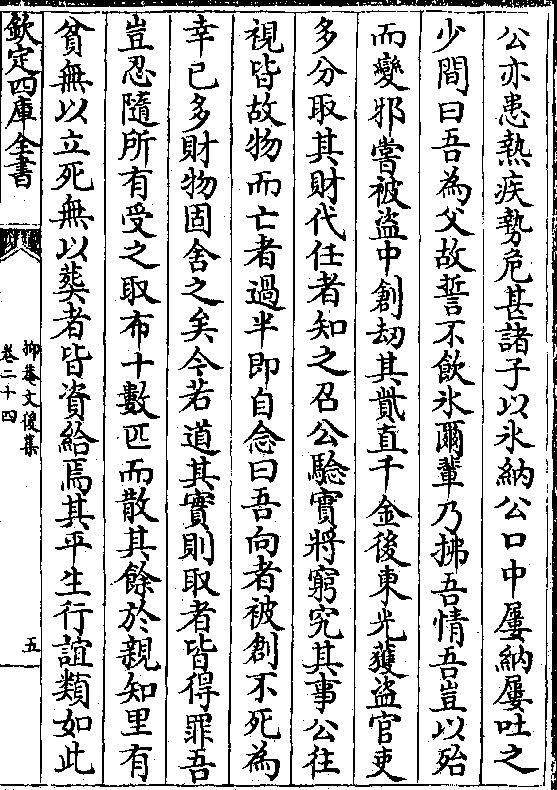 公亦患熱疾勢危甚諸子以氷納公口中屢納屢吐之
少間曰吾為父故誓不飲氷爾輩乃拂吾情吾豈以殆
而變邪嘗被盗中創刼其貲直千金後東光獲盗官吏
多分取其財代任者知之召公驗實將窮究其事公往
視皆故物而亡者過半即自念曰吾向者被創不死為
幸已多財物固舍之矣今若道其實則取者皆得罪吾
豈忍隨所有受之取布十數匹而散其餘於親知里有
貧無以立死無以葬者皆資給焉其平生行誼類如此
欽定四庫全書
抑菴文後集
卷二十四
五